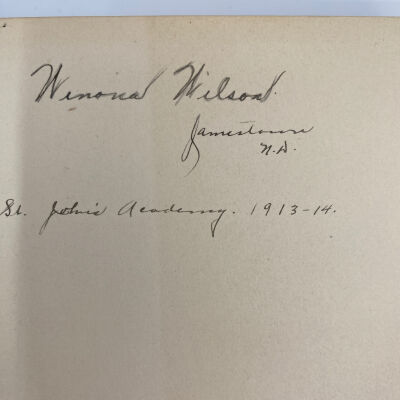 Winona Wilson.
Jamestown
N.D.
St. John's Academy. 1913-14.